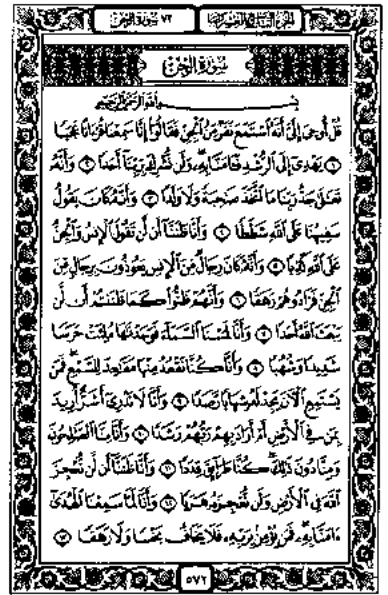 الجزء التاسع والعشرون ٧٢ سورة الجن
سورة الجن
بسم الله الرحمن الرحيم
قُلْ أُوحِيَ إِلَيَّ أَنَّهُ ٱسْتَمَعَ نَفَرٌ مِّنَ ٱلْجِنِّ فَقَالُوٓا۟ إِنَّا سَمِعْنَا قُرْءَانًا عَجَبًا
١ يَهْدِىٓ إِلَى ٱلرُّشْدِ فَـَٔامَنَّا بِهِۦ وَلَن نُّشْرِكَ بِرَبِّنَآ أَحَدًا ٢ وَأَنَّهُۥ
تَعَٰلَىٰ جَدُّ رَبِّنَا مَا ٱتَّخَذَ صَٰحِبَةً وَلَا وَلَدًا ٣ وَأَنَّهُۥ كَانَ يَقُولُ
سَفِيهُنَا عَلَى ٱللَّهِ شَطَطًا ٤ وَأَنَّا ظَنَنَّآ أَن لَّن تَقُولَ ٱلْإِنسُ وَٱلْجِنُّ
عَلَى ٱللَّهِ كَذِبًا ٥ وَأَنَّهُۥ كَانَ رِجَالٌ مِّنَ ٱلْإِنسِ يَعُوذُونَ بِرِجَالٍ مِّنَ
ٱلْجِنِّ فَزَادُوهُمْ رَهَقًا ٦ وَأَنَّهُمْ ظَنُّوا۟ كَمَا ظَنَنتُمْ أَن لَّن
يَبْعَثَ ٱللَّهُ أَحَدًا ٧ وَأَنَّا لَمَسْنَا ٱلسَّمَآءَ فَوَجَدْنَٰهَا مُلِئَتْ حَرَسًا
شَدِيدًا وَشُهُبًا ٨ وَأَنَّا كُنَّا نَقْعُدُ مِنْهَا مَقَٰعِدَ لِلسَّمْعِ فَمَن
يَسْتَمِعِ ٱلْـَٔانَ يَجِدْ لَهُۥ شِهَابًا رَّصَدًا ٩ وَأَنَّا لَا نَدْرِىٓ أَشَرٌّ أُرِيدَ
بِمَن فِى ٱلْأَرْضِ أَمْ أَرَادَ بِهِمْ رَبُّهُمْ رَشَدًا ١٠ وَأَنَّا مِنَّا ٱلصَّٰلِحُونَ
وَمِنَّا دُونَ ذَٰلِكَ كُنَّا طَرَآئِقَ قِدَدًا ١١ وَأَنَّا ظَنَنَّآ أَن لَّن نُّعْجِزَ
ٱللَّهَ فِى ٱلْأَرْضِ وَلَن نُّعْجِزَهُۥ هَرَبًا ١٢ وَأَنَّا لَمَّا سَمِعْنَا ٱلْهُدَىٰٓ
ءَامَنَّا بِهِۦ فَمَن يُؤْمِنۢ بِرَبِّهِۦ فَلَا يَخَافُ بَخْسًا وَلَا رَهَقًا ١٣
٥٧٢